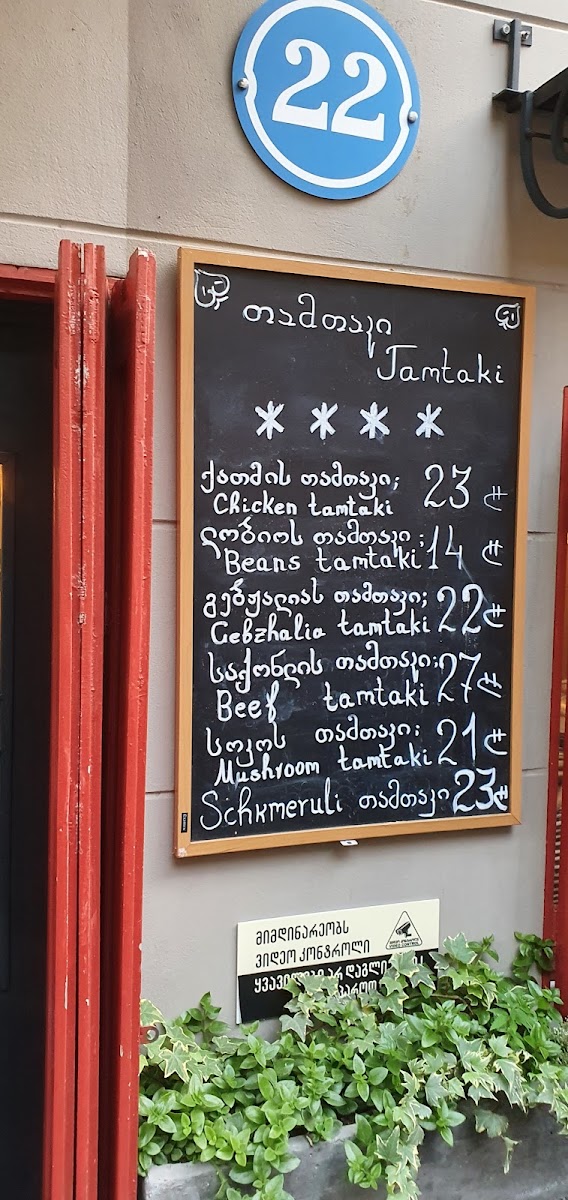 22
თამთაკი
Tamtaki
****
ქათმის თამთაკი; 23 ₾
Chicken tamtaki
ლობიოს თამთაკი; 14 ₾
Beans tamtaki
გებჟალიას თამთაკი; 22 ₾
Gebzhalia tamtaki
საქონლის თამთაკი; 27 ₾
Beef tamtaki
სოკოს თამთაკი; 21 ₾
Mushroom tamtaki
Schkmeruli თამთაკი 23 ₾
მიმდინარეობს
ვიდეო კონტროლი
VIDEO CONTROL
ყვავილები არ